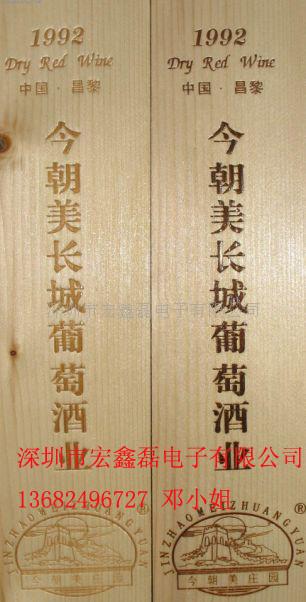 1992
Dry Red Wine
中国·昌黎
今朝美长城葡萄酒业
JINZHAOMEIZHUANGYUAN
®
今朝美庄园
1992
Dry Red Wine
中国·昌黎
今朝美长城葡萄酒业
JINZHAOMEIZHUANGYUAN
®
今朝美庄园
深圳市宏鑫磊电子有限公司
深圳市宏鑫磊电子有限公司
13682496727 邓小姐